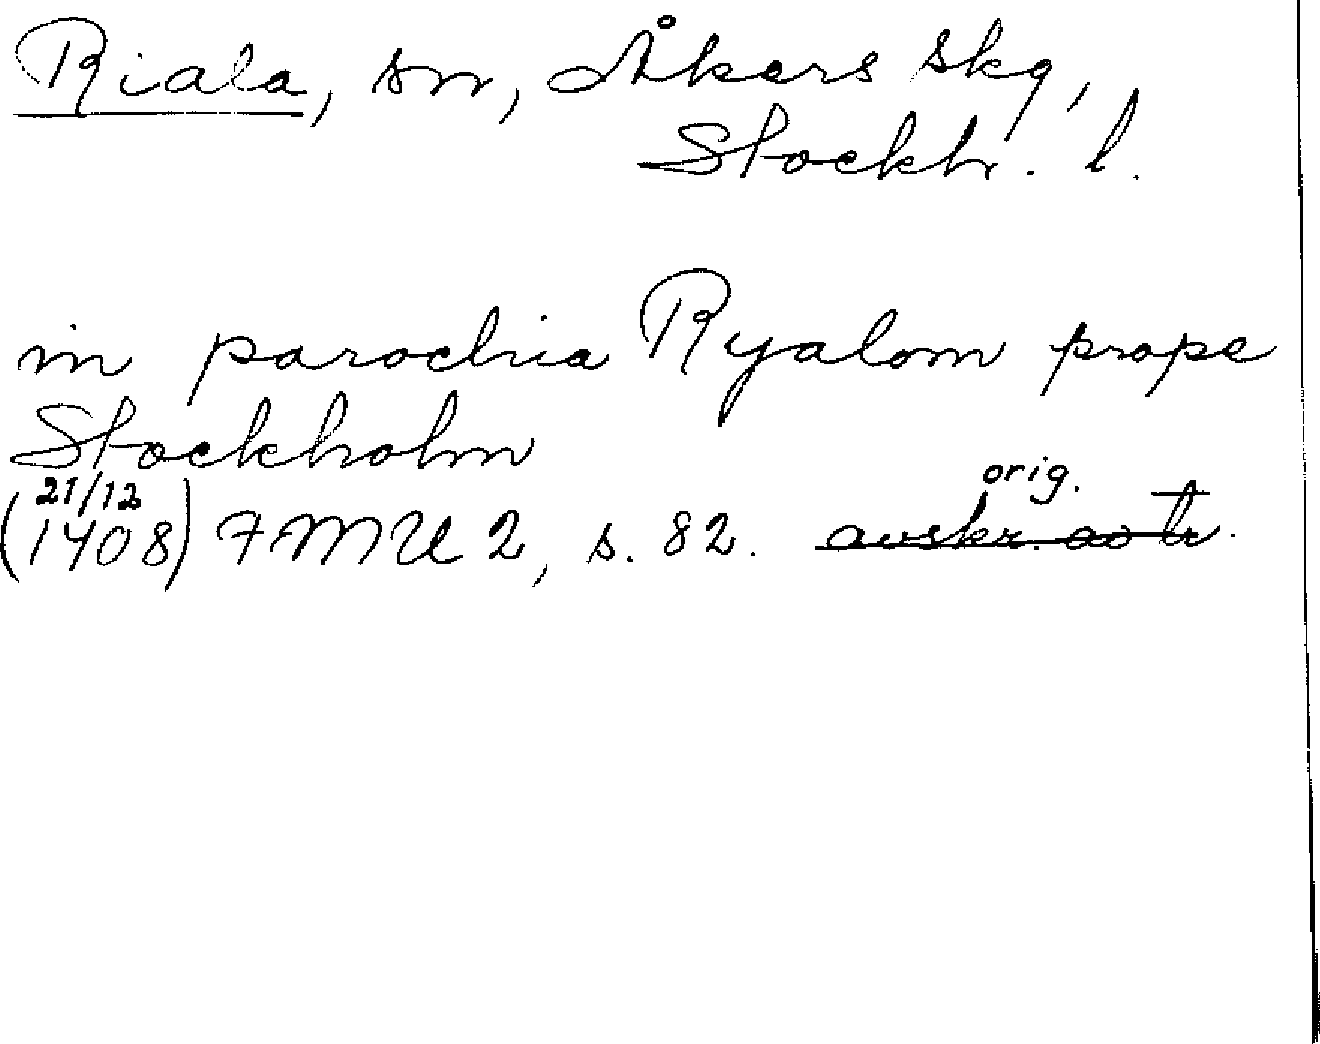 Riala, sn, Åkers skg,
Stockh. l.
in parochia Ryalom prope
Stockholm
21/12 orig.
(1408) FMU 2, s. 82. avskr.